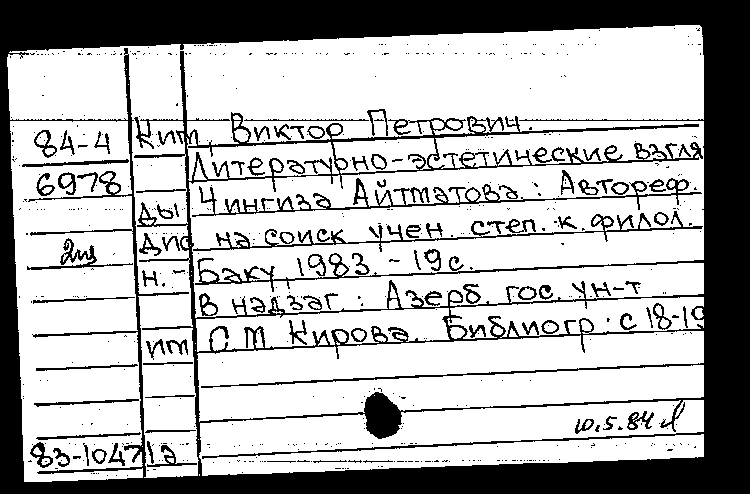 84-4 Ким, Виктор Петрович.
6978 Литературно-эстетические взгля
ды Чингиза Айтматова: Автореф.
дис на соиск учен. степ. к. филол.
н. - Баку, 1983. - 19 с.
В надзаг.: Азерб. гос. ун-т
им С.М. Кирова. Библиогр: с 18-19
10.5.84
83-10471а